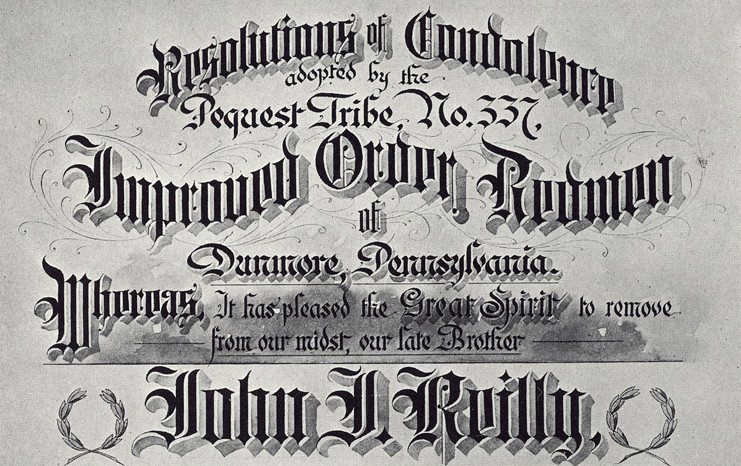 Resolutions of Condolence
adopted by the
Pequest Tribe, No. 337,
Improved Order, Redmen
of
Dunmore, Pennsylvania.
Whereas, It has pleased the Great Spirit to remove
from our midst, our late Brother
John J. Reilly,